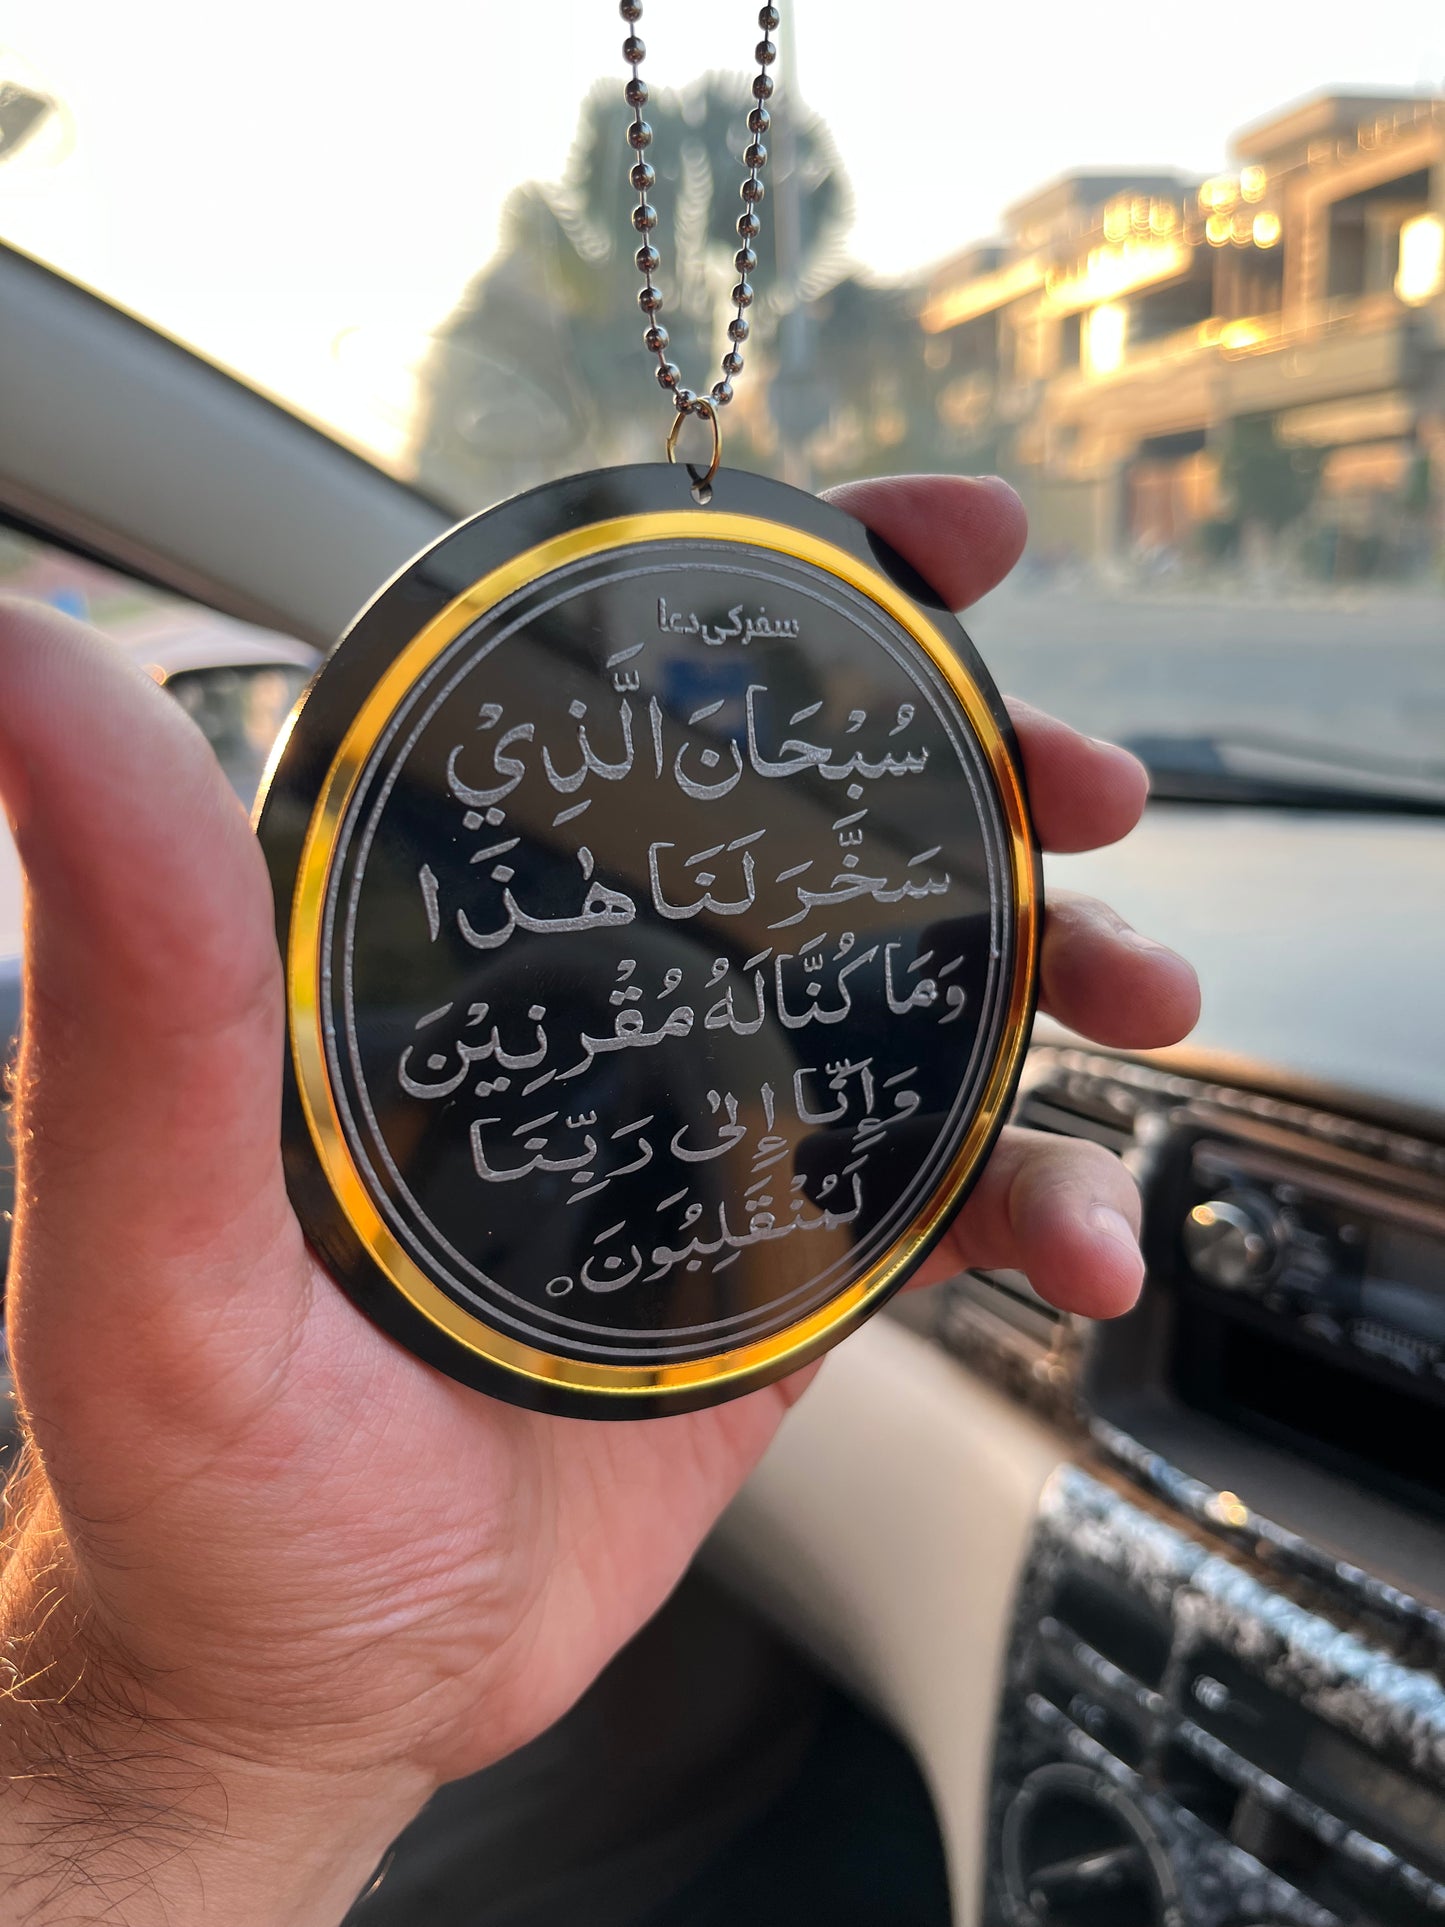 سفر کی دعا
سُبْحَانَ الَّذِيْ
سَخَّرَ لَنَا هٰذَا
وَمَا كُنَّا لَهُ مُقْرِنِيْنَ
وَإِنَّا إِلىٰ رَبِّنَا
لَمُنْقَلِبُونَ۝